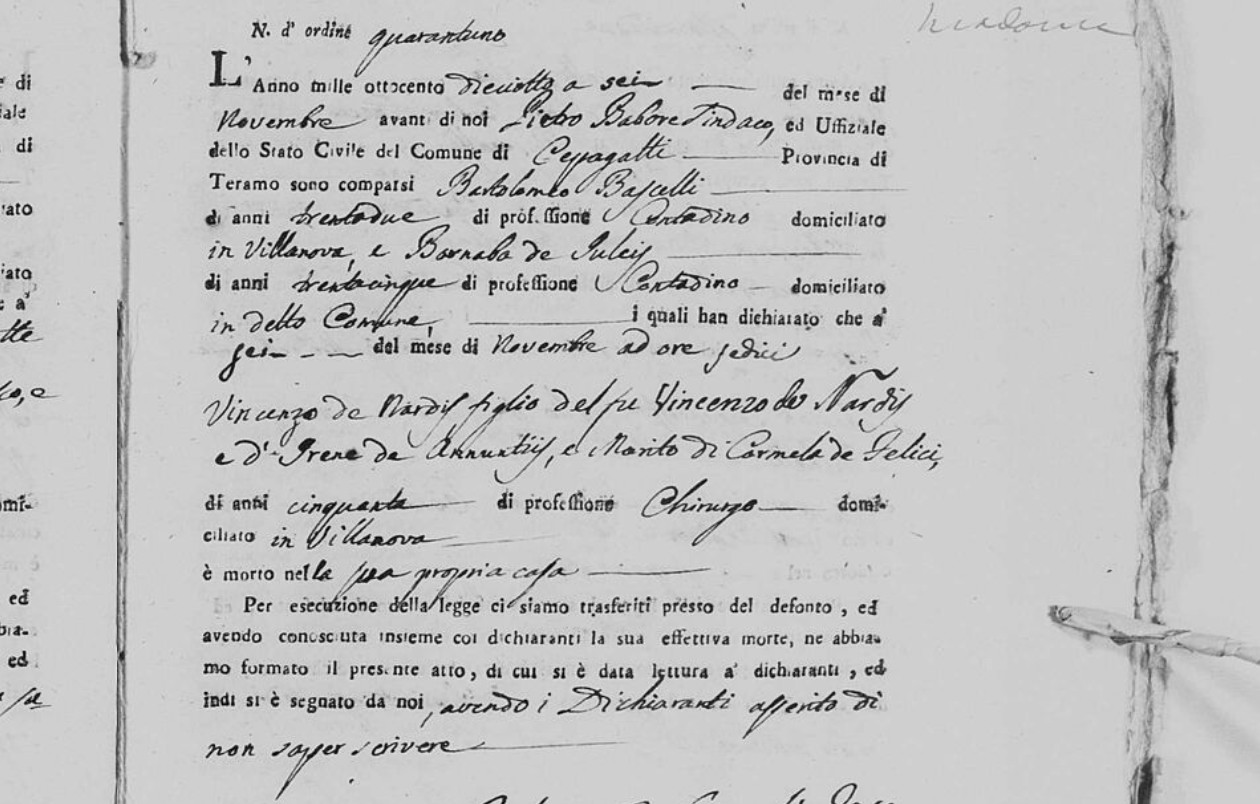 N. d' ordine quarantuno
L' Anno mille ottocento dieciotto a sei del mese di
Novembre avanti di noi Pietro Babore Sindaco, ed Uffiziale
dello Stato Civile del Comune di Cepagatti Provincia di
Teramo sono comparsi Bartolomeo Bascelli
di anni trentadue di professione Contadino domiciliato
in Villanova, e Barnaba de Juleis
di anni trentacinque di professione Contadino domiciliato
in detto Comune, i quali han dichiarato che a'
sei del mese di Novembre ad ore sedici
Vincenzo de Nardis figlio del fu Vincenzo de Nardis
e d' Irene de Annuntiis, e Marito di Carmela de Felici,
di anni cinquanta di professione Chirurgo domi-
ciliato in Villanova
è morto nella sua propria casa
Per esecuzione della legge ci siamo trasferiti presto del defonto, ed
avendo conosciuta insieme coi dichiaranti la sua effettiva morte, ne abbia-
mo formato il presente atto, di cui si è data lettura a' dichiaranti, ed
indi si è segnato da noi, avendo i Dichiaranti asserito di
non saper scrivere